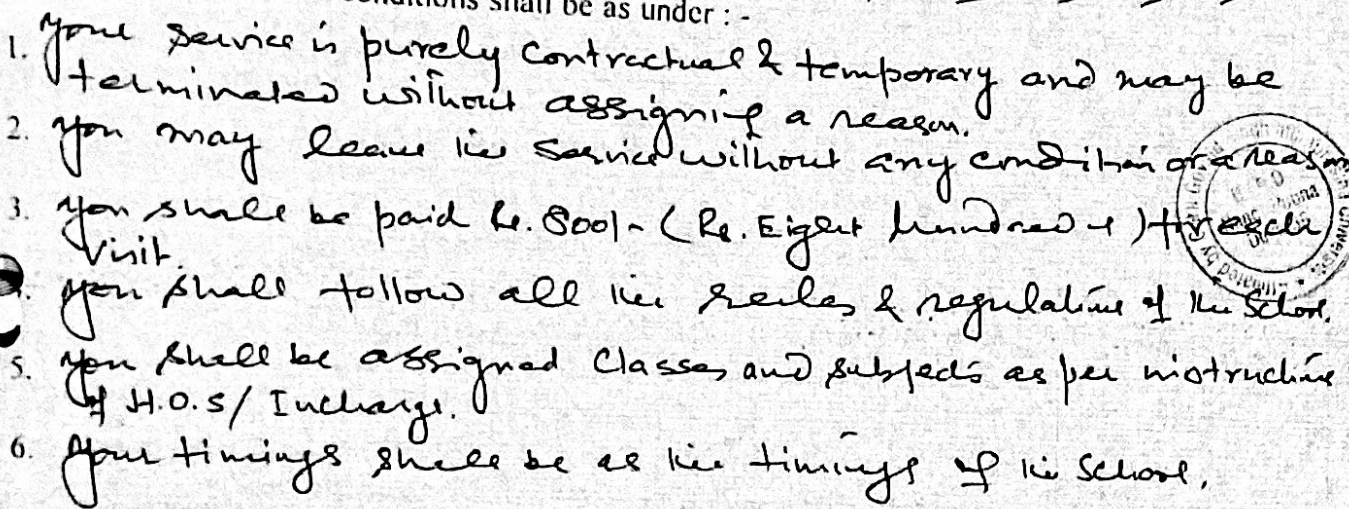 conditions shall be as under : -
1. Your service is purely contractual & temporary and may be
terminated without assigning a reason.
2. You may leave the service without any condition or a reason
3. You shall be paid Rs. 800/- (Rs. Eight hundred) for each
Visit.
You shall follow all the rules & regulations of the School.
5. You shall be assigned Classes and subjects as per instructions
of H.O.S/ Incharge.
6. Your timings shall be as the timings of the School.